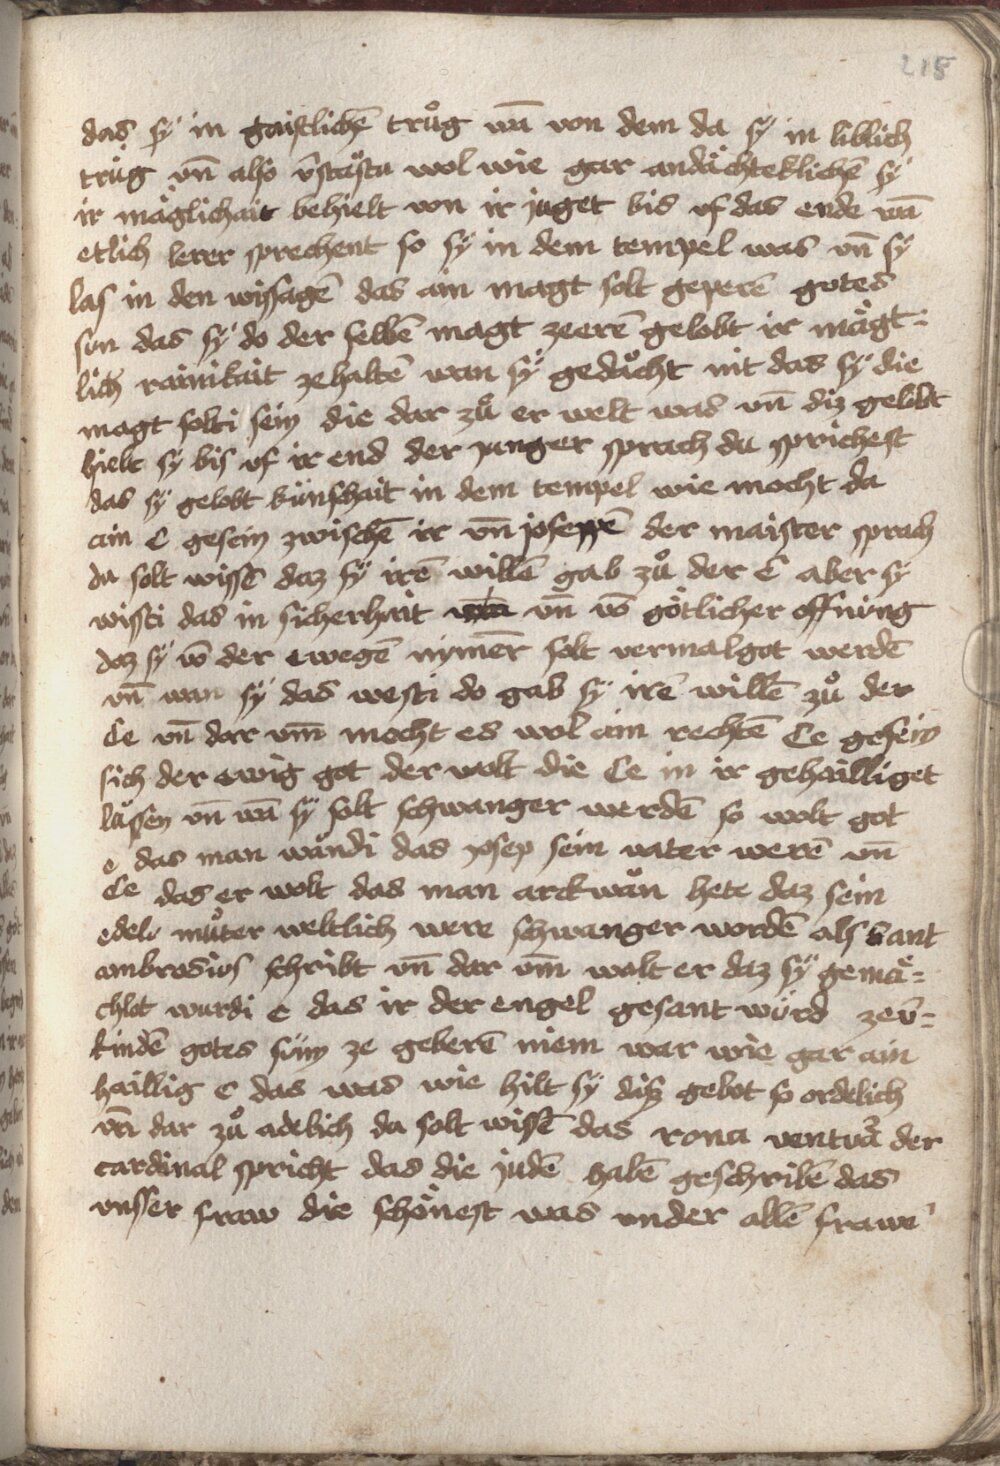 218
das sÿ in gaistlichē trůg wā von dem da sÿ in liblich
trůg vn̄ also v̄stastu wol wie gar andächteklichē sÿ
ir mäglichait behielt von ir juget bis vf das ende wā
etlich lerer sprechent so sÿ in dem tempel was vn̄ sÿ
las in den wissagē das ain magt solt geperē gotes
sun das sÿ do der selbē magt zeerē gelobt ir mägt-
lich rainikait zehaltē wan sÿ gedächt nit das sÿ die
magt solti sein die dar zů er welt was vn̄ diz gelübt
hielt sÿ bis vf ir end der junger sprach du sprichest
das sÿ gelobt künschait in dem tempel wie mocht da
ain e gesein zwischē ir vn̄ joseppē der maister sprach
du solt wissē daz sÿ irē willē gab zů der e aber sÿ
wisti das in sicherhait vn̄ vō götlicher offnung
daz sÿ vō der ewegē nymēr solt vermalgot werdē
vn̄ wan sÿ das westi do gab sÿ irē willē zů der
Ee vn̄ dar vm̄ mocht es wol ain rechtē Ee gesein
sich der ewig got der wolt die Ee in ir gehailliget
lässen vn̄ wā sÿ solt schwanger werdē so wolt got
e das man wändi das josep sein vater werē vn̄
Ee das er wolt das man arckwän hete daz sein
edele můter weltlich were schwanger wordē als sant
ambrosios schribt vn̄ dar vm̄ wolt er daz sÿ gemä-
chlet wurdi e das ir der engel gesant würd zev̄-
kindē gotes sün ze geberē niem war wie gar ain
haillig e das was wie hilt sÿ dis gebot so ordelich
vn̄ dar zů adelich du solt wissē das rona ventura der
cardinal spricht das die judē habē geschribē das
vnsser fraw die schönest was vnder allē frawē